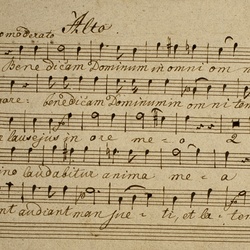 omoderato Alto.
Benedicam Dominum in omni om
pore: benedicam Dominum in omni tem
laus ejus in ore me = o 2
ino laudabitur anima me = a
nt audiant mansue = ti, et læ = ten